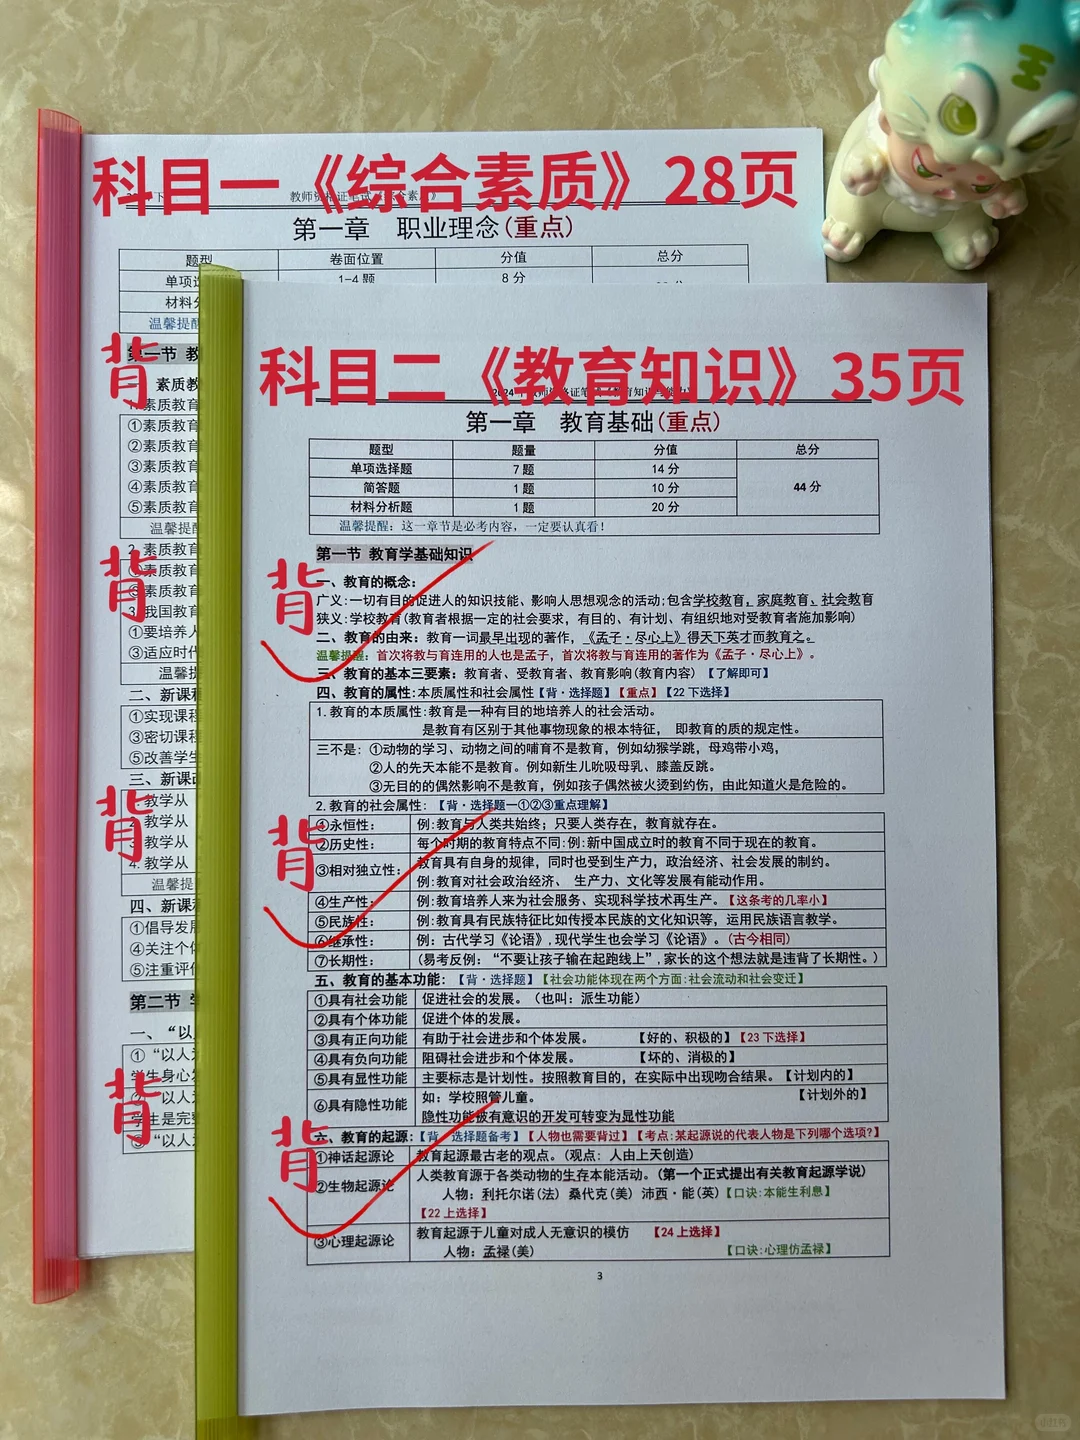 科目一《综合素质》28页
教师资格证笔试
第一章 职业理念(重点)
题型 卷面位置 分值 总分
单项选 1-4题 8分
材料分
温馨提醒
第一节 教
素质教
素质教育
①素质教育
②素质教育
③素质教育
④素质教育
⑤素质教育
温馨提
2. 素质教育
素质教育
素质教育
3. 我国教育
①要培养人
③适应时代
温馨提
二、新课程
①实现课程
③密切课程
⑤改善学生
三、新课改
教学从
教学从
教学从
4. 教学从
温馨提
四、新课程
①倡导发展
④关注个体
⑤注重评价
第二节 学
一、“以人
①“以人为
学生身心发
“以人
学生是完整
“以人
背
背
背
背
科目二《教育知识》35页
第一章 教育基础(重点)
题型 题量 分值 总分
单项选择题 7题 14分 44分
简答题 1题 10分
材料分析题 1题 20分
温馨提醒：这一章节是必考内容，一定要认真看！
第一节 教育学基础知识
一、教育的概念：
广义:一切有目的促进人的知识技能、影响人思想观念的活动;包含学校教育、家庭教育、社会教育
狭义:学校教育(教育者根据一定的社会要求，有目的、有计划、有组织地对受教育者施加影响)
二、教育的由来：教育一词最早出现的著作，《孟子·尽心上》得天下英才而教育之。
温馨提醒：首次将教与育连用的人也是孟子，首次将教与育连用的著作为《孟子·尽心上》。
三、教育的基本三要素：教育者、受教育者、教育影响(教育内容)【了解即可】
四、教育的属性:本质属性和社会属性【背·选择题】【重点】【22下选择】
1. 教育的本质属性:教育是一种有目的地培养人的社会活动。
是教育有区别于其他事物现象的根本特征， 即教育的质的规定性。
三不是：①动物的学习、动物之间的哺育不是教育，例如幼猴学跳，母鸡带小鸡，
②人的先天本能不是教育。例如新生儿吮吸母乳、膝盖反跳。
③无目的的偶然影响不是教育，例如孩子偶然被火烫到约伤，由此知道火是危险的。
2. 教育的社会属性：【背·选择题一①②③重点理解】
①永恒性： 例:教育与人类共始终；只要人类存在，教育就存在。
②历史性： 每个时期的教育特点不同:例:新中国成立时的教育不同于现在的教育。
③相对独立性： 教育具有自身的规律，同时也受到生产力，政治经济、社会发展的制约。
例:教育对社会政治经济、 生产力、文化等发展有能动作用。
④生产性： 例:教育培养人来为社会服务、实现科学技术再生产。【这条考的几率小】
⑤民族性： 例:教育具有民族特征比如传授本民族的文化知识等，运用民族语言教学。
⑥继承性： 例：古代学习《论语》,现代学生也会学习《论语》。(古今相同)
⑦长期性： (易考反例：“不要让孩子输在起跑线上”,家长的这个想法就是违背了长期性。)
五、教育的基本功能：【背·选择题】【社会功能体现在两个方面:社会流动和社会变迁】
①具有社会功能 促进社会的发展。（也叫：派生功能）
②具有个体功能 促进个体的发展。
③具有正向功能 有助于社会进步和个体发展。 【好的、积极的】【23下选择】
④具有负向功能 阻碍社会进步和个体发展。 【坏的、消极的】
⑤具有显性功能 主要标志是计划性。按照教育目的，在实际中出现吻合结果。【计划内的】
⑥具有隐性功能 如：学校照管儿童。 【计划外的】
隐性功能被有意识的开发可转变为显性功能
六、教育的起源：【背 选择题备考】【人物也需要背过】【考点：某起源说的代表人物是下列哪个选项?】
①神话起源论 教育起源最古老的观点。(观点：人由上天创造)
②生物起源论 人类教育源于各类动物的生存本能活动。(第一个正式提出有关教育起源学说)
人物：利托尔诺(法) 桑代克(美) 沛西·能(英)【口诀:本能生利息】
【22上选择】
③心理起源论 教育起源于儿童对成人无意识的模仿 【24上选择】
人物：孟禄(美) 【口诀:心理仿孟禄】
背
背
背
3
小红书